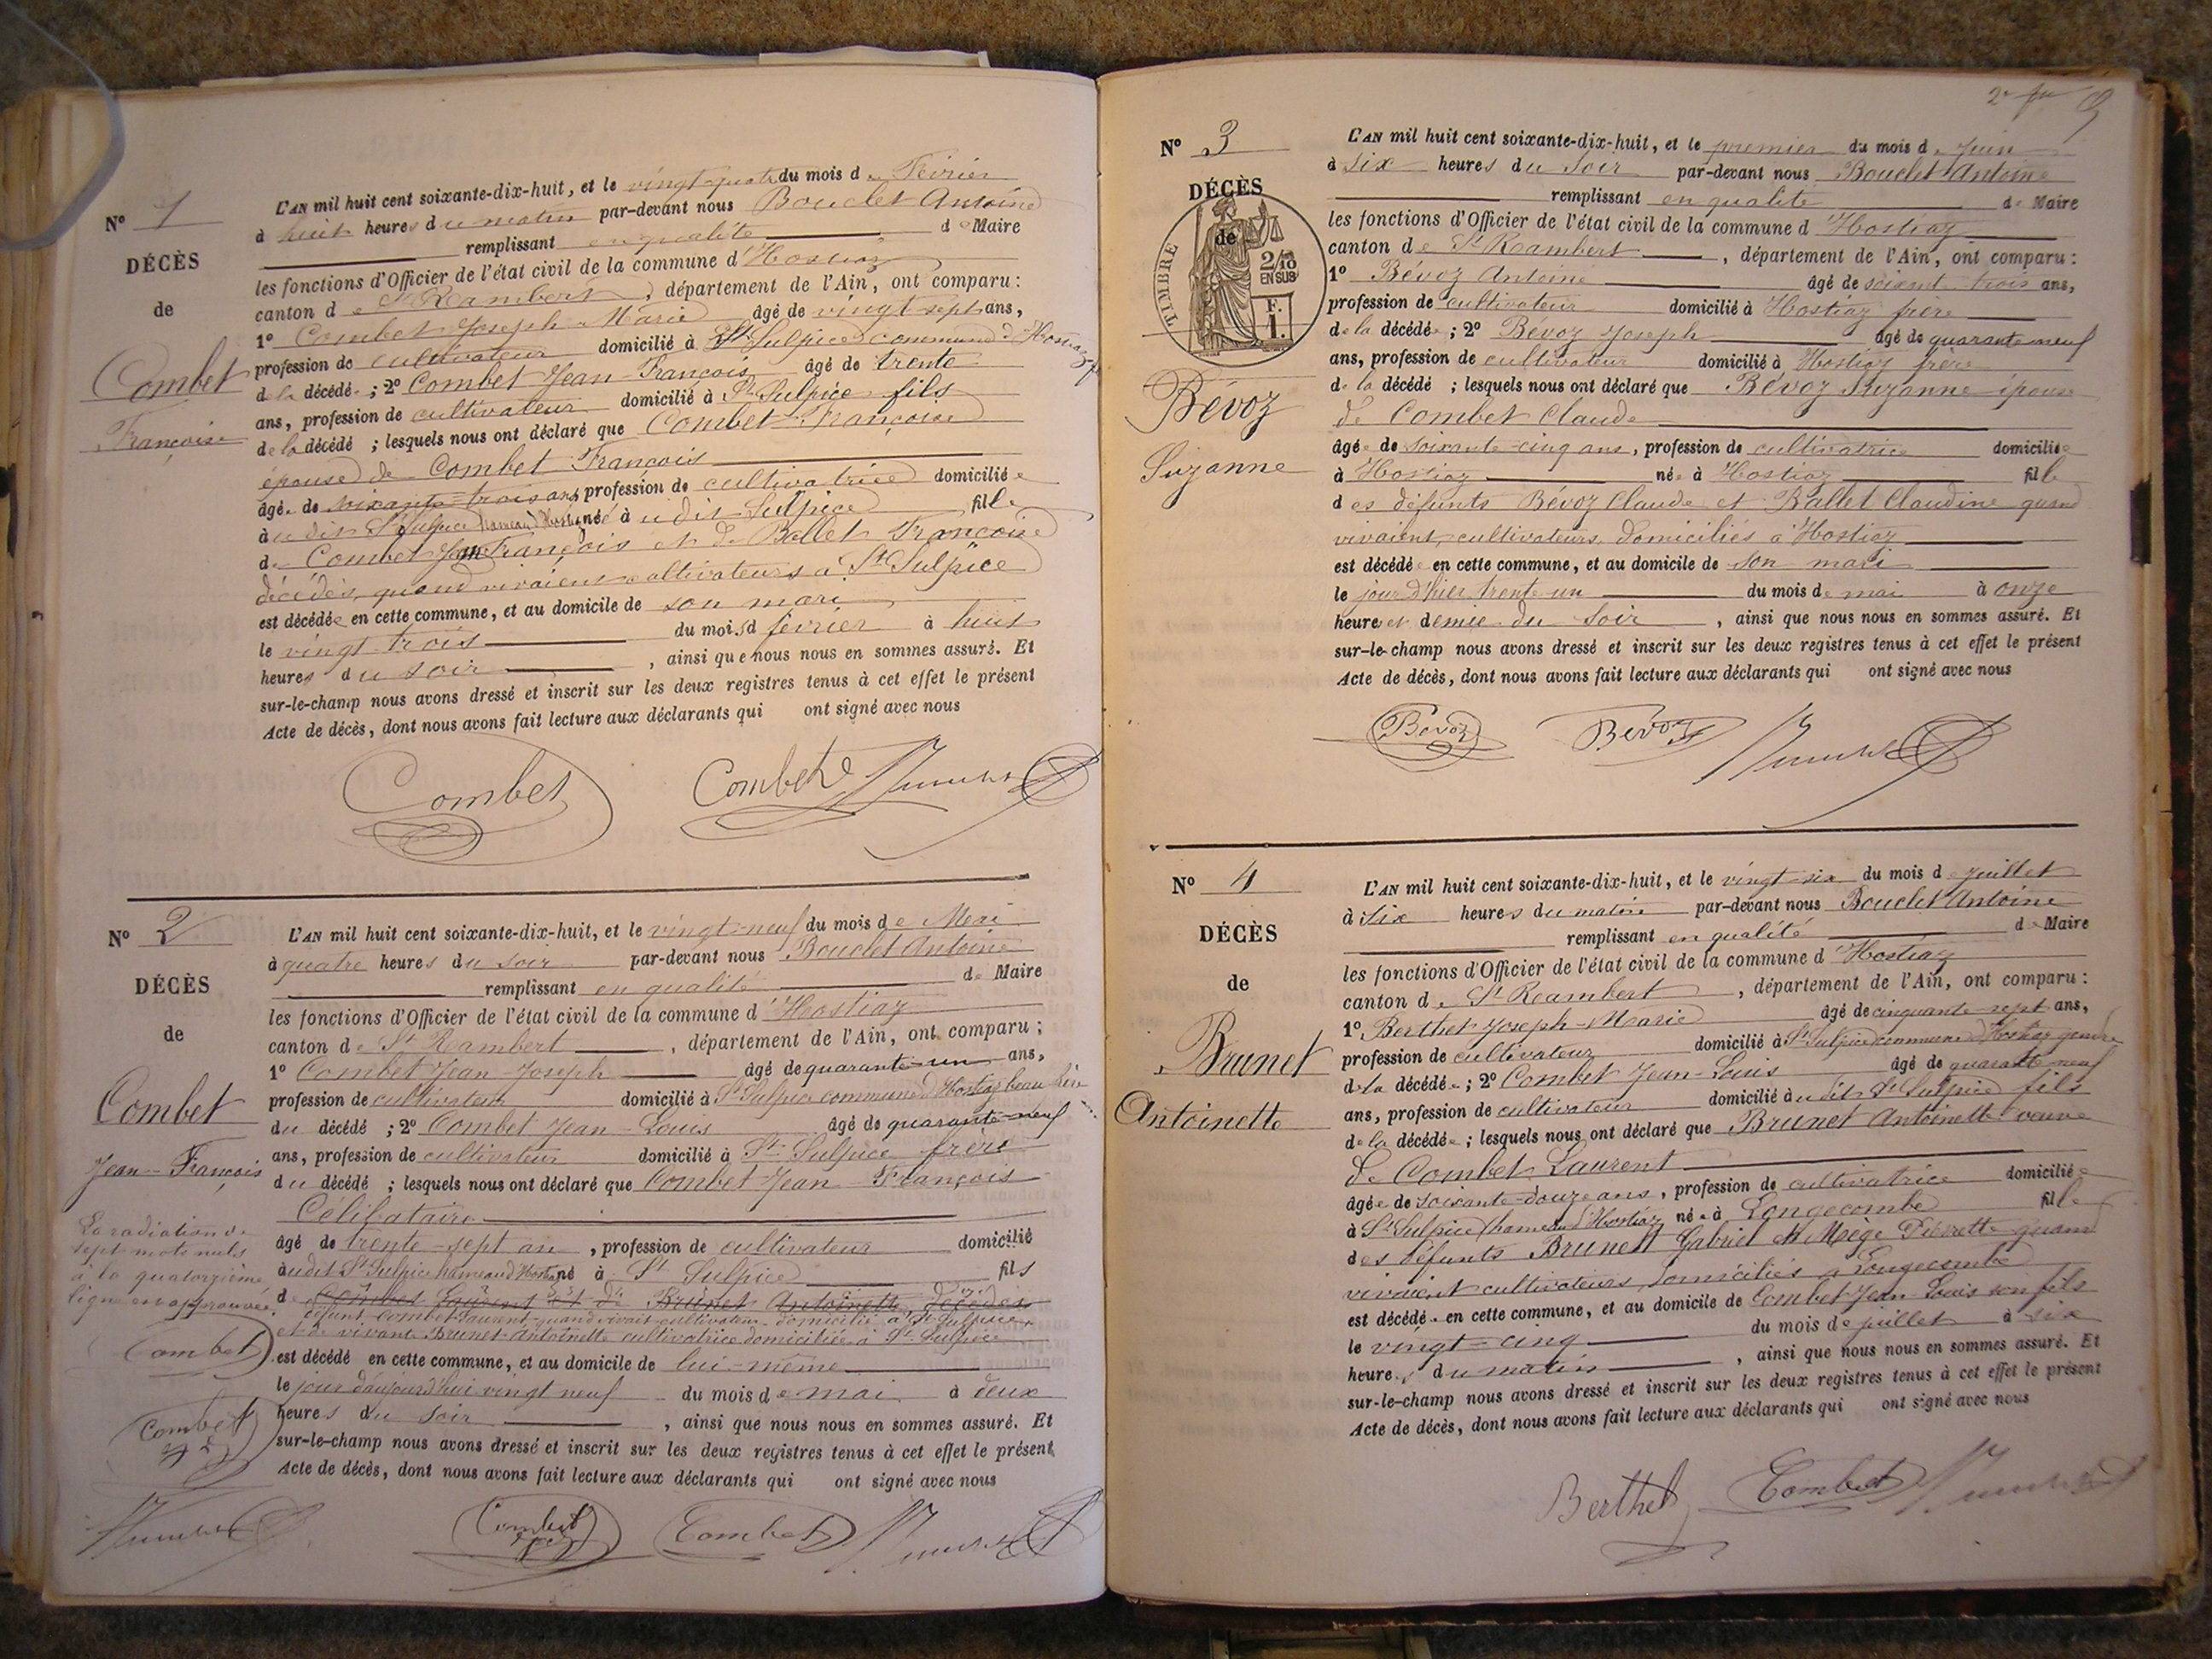 N° 1
DÉCÈS
de
Combet
Françoise
L'AN mil huit cent soixante-dix-huit, et le vingt-quatre du mois de Février
à huit heures du matin par-devant nous Bouclet Antoine
remplissant en qualité de Maire
les fonctions d'Officier de l'état civil de la commune d'Hostiaz
canton de St Rambert, département de l'Ain, ont comparu :
1° Combet Joseph-Marie âgé de vingt sept ans,
profession de cultivateur domicilié à St Sulpice commune d'Hostiaz
de la décédée ; 2° Combet Jean-François âgé de trente
ans, profession de cultivateur domicilié à St Sulpice fils
de la décédé ; lesquels nous ont déclaré que Combet Françoise
épouse de Combet François
âgée de soixante-trois ans, profession de cultivatrice domiciliée
à udit St Sulpice hameau d'Hostiaz né à udit Sulpice fille
de Combet Jean François et de Ballet Françoise
décédés, quand vivaient cultivateurs à St Sulpice
est décédée en cette commune, et au domicile de son mari
le vingt-trois du mois d février à huit
heures du soir, ainsi que nous nous en sommes assuré. Et
sur-le-champ nous avons dressé et inscrit sur les deux registres tenus à cet effet le présent
Acte de décès, dont nous avons fait lecture aux déclarants qui ont signé avec nous
Combet Combet
N° 2
DÉCÈS
de
Combet
Jean-François
La radiation de
sept mots nuls
à la quatorzième
ligne est approuvée.
Combet
Combet
L'AN mil huit cent soixante-dix-huit, et le vingt-neuf du mois de Mai
à quatre heures du soir par-devant nous Bouclet Antoine
remplissant en qualité de Maire
les fonctions d'Officier de l'état civil de la commune d'Hostiaz
canton de St Rambert, département de l'Ain, ont comparu ;
1° Combet Jean-Joseph âgé de quarante-un ans,
profession de cultivateur domicilié à St Sulpice commune d'Hostiaz beau-frère
du décédé ; 2° Combet Jean-Louis âgé de quarante-neuf
ans, profession de cultivateur domicilié à St Sulpice frère
du décédé ; lesquels nous ont déclaré que Combet Jean-François
Célibataire
âgé de trente-sept an, profession de cultivateur domicilié
à udit St Sulpice hameau d'Hostiaz né à St Sulpice fils
de Combet Laurent et de Brunet Antoinette, décédés
défunt Combet Laurent quand vivait cultivateur domicilié à St Sulpice
et de vivante Brunet Antoinette cultivatrice domiciliée à St Sulpice
est décédé en cette commune, et au domicile de lui-même
le jour d'aujourd'hui vingt neuf du mois de mai à deux
heures du soir, ainsi que nous nous en sommes assuré. Et
sur-le-champ nous avons dressé et inscrit sur les deux registres tenus à cet effet le présent
Acte de décès, dont nous avons fait lecture aux déclarants qui ont signé avec nous
Combet Combet
N° 3
DÉCÈS
de
TIMBRE
2/10
EN SUS
F.
1.
Bévoz
Suzanne
L'AN mil huit cent soixante-dix-huit, et le premier du mois de Juin
à six heures du soir par-devant nous Bouclet Antoine
remplissant en qualité de Maire
les fonctions d'Officier de l'état civil de la commune d'Hostiaz
canton de St Rambert, département de l'Ain, ont comparu :
1° Bévoz Antoine âgé de soixante trois ans,
profession de cultivateur domicilié à Hostiaz frère
de la décédée ; 2° Bévoz Joseph âgé de quarante neuf
ans, profession de cultivateur domicilié à Hostiaz frère
de la décédé ; lesquels nous ont déclaré que Bévoz Suzanne épouse
de Combet Claude
âgée de soixante-cinq ans, profession de cultivatrice domiciliée
à Hostiaz née à Hostiaz fille
des défunts Bévoz Claude et Ballet Claudine quand
vivaient, cultivateurs, domiciliés à Hostiaz
est décédée en cette commune, et au domicile de son mari
le jour d'hier trente un du mois de mai à onze
heure et demie du soir, ainsi que nous nous en sommes assuré. Et
sur-le-champ nous avons dressé et inscrit sur les deux registres tenus à cet effet le présent
Acte de décès, dont nous avons fait lecture aux déclarants qui ont signé avec nous
Bévoz Bévoz
N° 4
DÉCÈS
de
Brunet
Antoinette
L'AN mil huit cent soixante-dix-huit, et le vingt-six du mois de Juillet
à six heures du matin par-devant nous Bouclet Antoine
remplissant en qualité de Maire
les fonctions d'Officier de l'état civil de la commune d'Hostiaz
canton de St Rambert, département de l'Ain, ont comparu :
1° Berthet Joseph-Marie âgé de cinquante sept ans,
profession de cultivateur domicilié à St Sulpice commune d'Hostiaz gendre
de la décédée ; 2° Combet Jean-Louis âgé de quarante neuf
ans, profession de cultivateur domicilié à udit St Sulpice fils
de la décédée ; lesquels nous ont déclaré que Brunet Antoinette veuve
de Combet Laurent
âgée de soixante-douze ans, profession de cultivatrice domiciliée
à St Sulpice (hameau d'Hostiaz née à Longecombe fille
des défunts Brunet Gabriel et Mège Pierrette quand
vivaient cultivateurs, domiciliés à Longecombe
est décédée en cette commune, et au domicile de Combet Jean-Louis son fils
le vingt-cinq du mois de juillet à six
heures du matin, ainsi que nous nous en sommes assuré. Et
sur-le-champ nous avons dressé et inscrit sur les deux registres tenus à cet effet le présent
Acte de décès, dont nous avons fait lecture aux déclarants qui ont signé avec nous
Berthet Combet